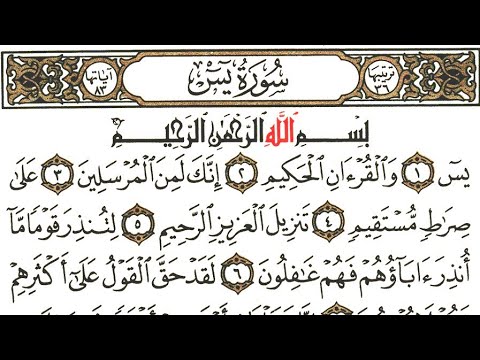 آياتها ٨٣ سُورَةُ يسٓ ترتيبها ٣٦
بِسْمِ ٱللَّهِ ٱلرَّحْمَٰنِ ٱلرَّحِيمِ
يسٓ ١ وَٱلْقُرْءَانِ ٱلْحَكِيمِ ٢ إِنَّكَ لَمِنَ ٱلْمُرْسَلِينَ ٣ عَلَىٰ
صِرَٰطٍ مُّسْتَقِيمٍ ٤ تَنزِيلَ ٱلْعَزِيزِ ٱلرَّحِيمِ ٥ لِتُنذِرَ قَوْمًا مَّآ
أُنذِرَ ءَابَآؤُهُمْ فَهُمْ غَٰفِلُونَ ٦ لَقَدْ حَقَّ ٱلْقَوْلُ عَلَىٰٓ أَكْثَرِهِمْ